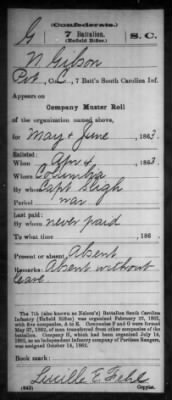 (Confederate.)
G 7 Battalion, S. C.
(Enfield Rifles)
N Gibson
Pvt, Co. C, 7 Batt'n South Carolina Inf.
Appears on
Company Muster Roll
of the organization named above,
for May & June, 1863.
Enlisted:
When Apr 4, 1863
Where Columbia
By whom Capt Sligh
Period war
Last paid:
By whom never paid
To what time , 186
Present or absent Absent
Remarks: Absent without
leave
The 7th (also known as Nelson's) Battalion South Carolina
Infantry (Enfield Rifles) was organized February 22, 1862,
with five companies, A to E. Companies F and G were formed
May 27, 1862, of men transferred from other companies of the
battalion. Company H, which had been organized July 15,
1862, as an independent company of Partisan Rangers,
was assigned October 18, 1862.
Book mark:
Lucille E. Fehl
(642) Copyist.